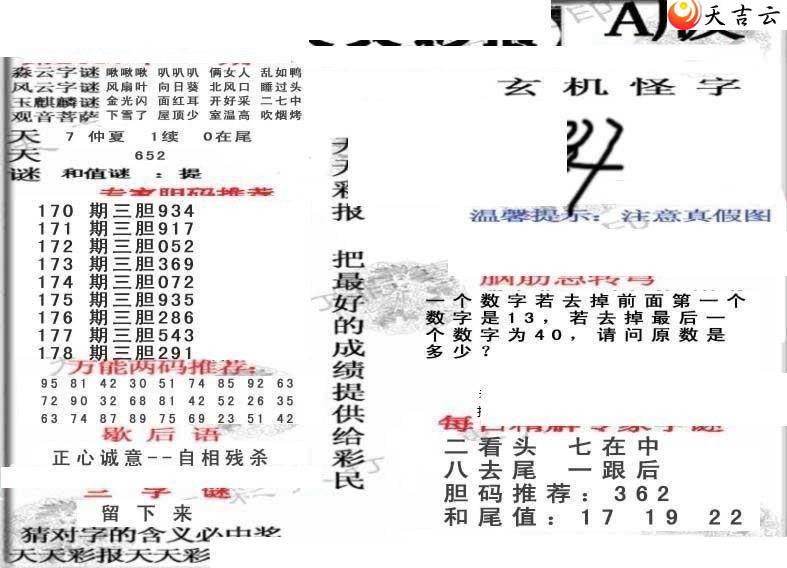 天吉云
森云字谜 啾啾啾 叭叭叭 俩女人 乱如鸭
风云字谜 风扇叶 向日葵 北风口 睡过头
玉麒麟谜 金光闪 面红耳 开好采 二七中
观音菩萨 下雪了 屋顶少 室温高 吹烟烤
天 7 仲夏 1续 0在尾
天 652
谜 和值谜 : 提
专家胆码推荐
170 期三胆934
171 期三胆917
172 期三胆052
173 期三胆369
174 期三胆072
175 期三胆935
176 期三胆286
177 期三胆543
178 期三胆291
万能两码推荐:
95 81 42 30 51 74 85 92 63
72 90 32 68 81 42 52 26 35
63 74 87 89 75 69 23 51 42
歇后语
正心诚意--自相残杀
三字谜
留下来
猜对字的含义必中奖
天天彩报天天彩
天天彩报 把最好的成绩提供给彩民
玄机怪字
温馨提示: 注意真假图
脑筋急转弯
一个数字若去掉前面第一个
数字是13，若去掉最后一
个数字为40，请问原数是
多少？
二看头 七在中
八去尾 一跟后
胆码推荐: 362
和尾值: 17 19 22